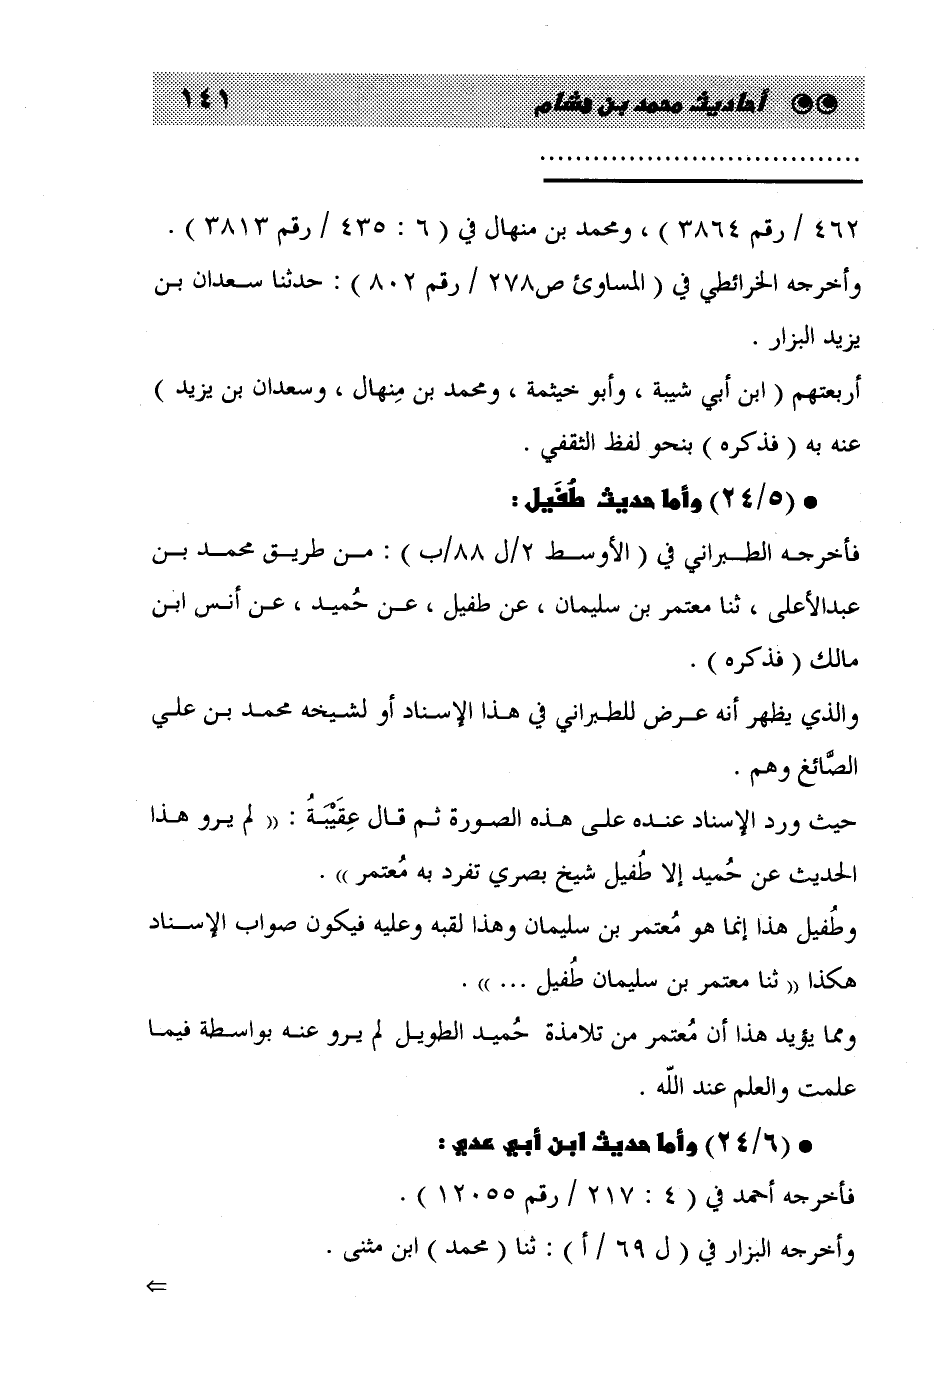 أحاديث محمد بن هشام ١٤١
....................................
٤٦٢ / رقم ٣٨٦٤ ) ، ومحمد بن منهال في ( ٦ : ٤٣٥ / رقم ٣٨١٣ ) .
وأخرجه الخرائطي في ( المساوئ ص٢٧٨ / رقم ٨٠٢ ) : حدثنا سعدان بن
يزيد البزار .
أربعتهم ( ابن أبي شيبة ، وأبو خيثمة ، ومحمد بن مِنهال ، وسعدان بن يزيد )
عنه به ( فذكره ) بنحو لفظ الثقفي .
● (٢٤/٥) وأما حديث طُفَيل :
فأخرجه الطبراني في ( الأوسط ٢/ل ٨٨/ب ) : من طريق محمد بن
عبدالأعلى ، ثنا معتمر بن سليمان ، عن طفيل ، عن حُميد ، عن أنس ابن
مالك ( فذكره ) .
والذي يظهر أنه عرض للطبراني في هذا الإسناد أو لشيخه محمد بن علي
الصَّائغ وهم .
حيث ورد الإسناد عنده على هذه الصورة ثم قال عِقَيْبَهُ : (( لم يرو هذا
الحديث عن حُميد إلا طُفيل شيخ بصري تفرد به مُعتمر )) .
وطُفيل هذا إنما هو مُعتمر بن سليمان وهذا لقبه وعليه فيكون صواب الإسناد
هكذا (( ثنا معتمر بن سليمان طُفيل ... )) .
ومما يؤيد هذا أن مُعتمر من تلامذة حُميد الطويل لم يرو عنه بواسطة فيما
علمت والعلم عند الله .
● (٢٤/٦) وأما حديث ابن أبي عدي :
فأخرجه أحمد في ( ٤ : ٢١٧ / رقم ١٢٠٥٥ ) .
وأخرجه البزار في ( ل ٦٩ / أ ) : ثنا ( محمد ) ابن مثنى .
⇐